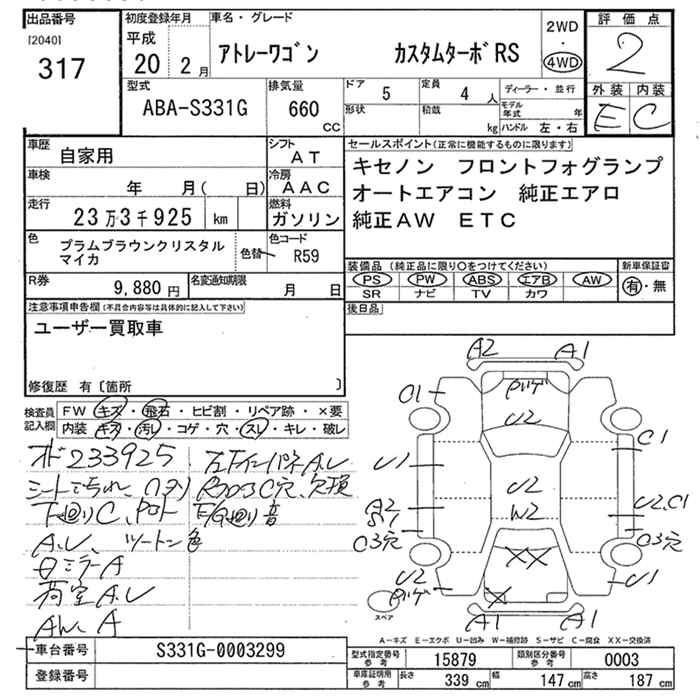 出品番号
[2040]
317
初度登録年月
平成
20 2月
車名・グレード
アトレーワゴン カスタムターボRS
2WD
・
4WD
評価点
2
外装 内装
E C
型式
ABA-S331G
排気量
660
cc
ドア
5
定員
4人
形状
積載
kg
ディーラー・並行
モデル年式
年
ハンドル 左・右
車歴
自家用
シフト
AT
車検
年 月( 日)
冷房
AAC
走行
23万3千925 km
燃料
ガソリン
色
プラムブラウンクリスタル
マイカ
色替
色コード
R59
R券
9,880円
名変通知期限
月 日
セールスポイント(正常に機能するものに限ります)
キセノン フロントフォグランプ
オートエアコン 純正エアロ
純正AW ETC
装備品 (純正品に限り○をつけてください)
PS PW ABS エアB AW
SR ナビ TV カワ
新車保証書
有・無
後日品
注意事項申告欄(不具合内容等は具体的に記入して下さい)
ユーザー買取車
修復歴 有〔箇所 〕
検査員
記入欄
FW キズ・飛石・ヒビ割・リペア跡・×要
内装 キズ・汚レ・コゲ・穴・スレ・キレ・破レ
233925
下回りC
E/G回り音
A.U、 ツートン色
ミラーA
荷室A.U
AW、A
A2 A1
O1
U2
C1
U1
U2
W2
A2
U2.C1
O3穴
O3穴
XX
U2
X
U1
A1 A1
スペア
A-キズ E-エクボ U-凹み W-補修跡 S-サビ C-腐食 XX-交換済
車台番号
S331G-0003299
登録番号
型式指定番号
参考
15879
類別区分番号
参考
0003
車庫証明用
参考
長さ
339 cm
幅
147 cm
高さ
187 cm